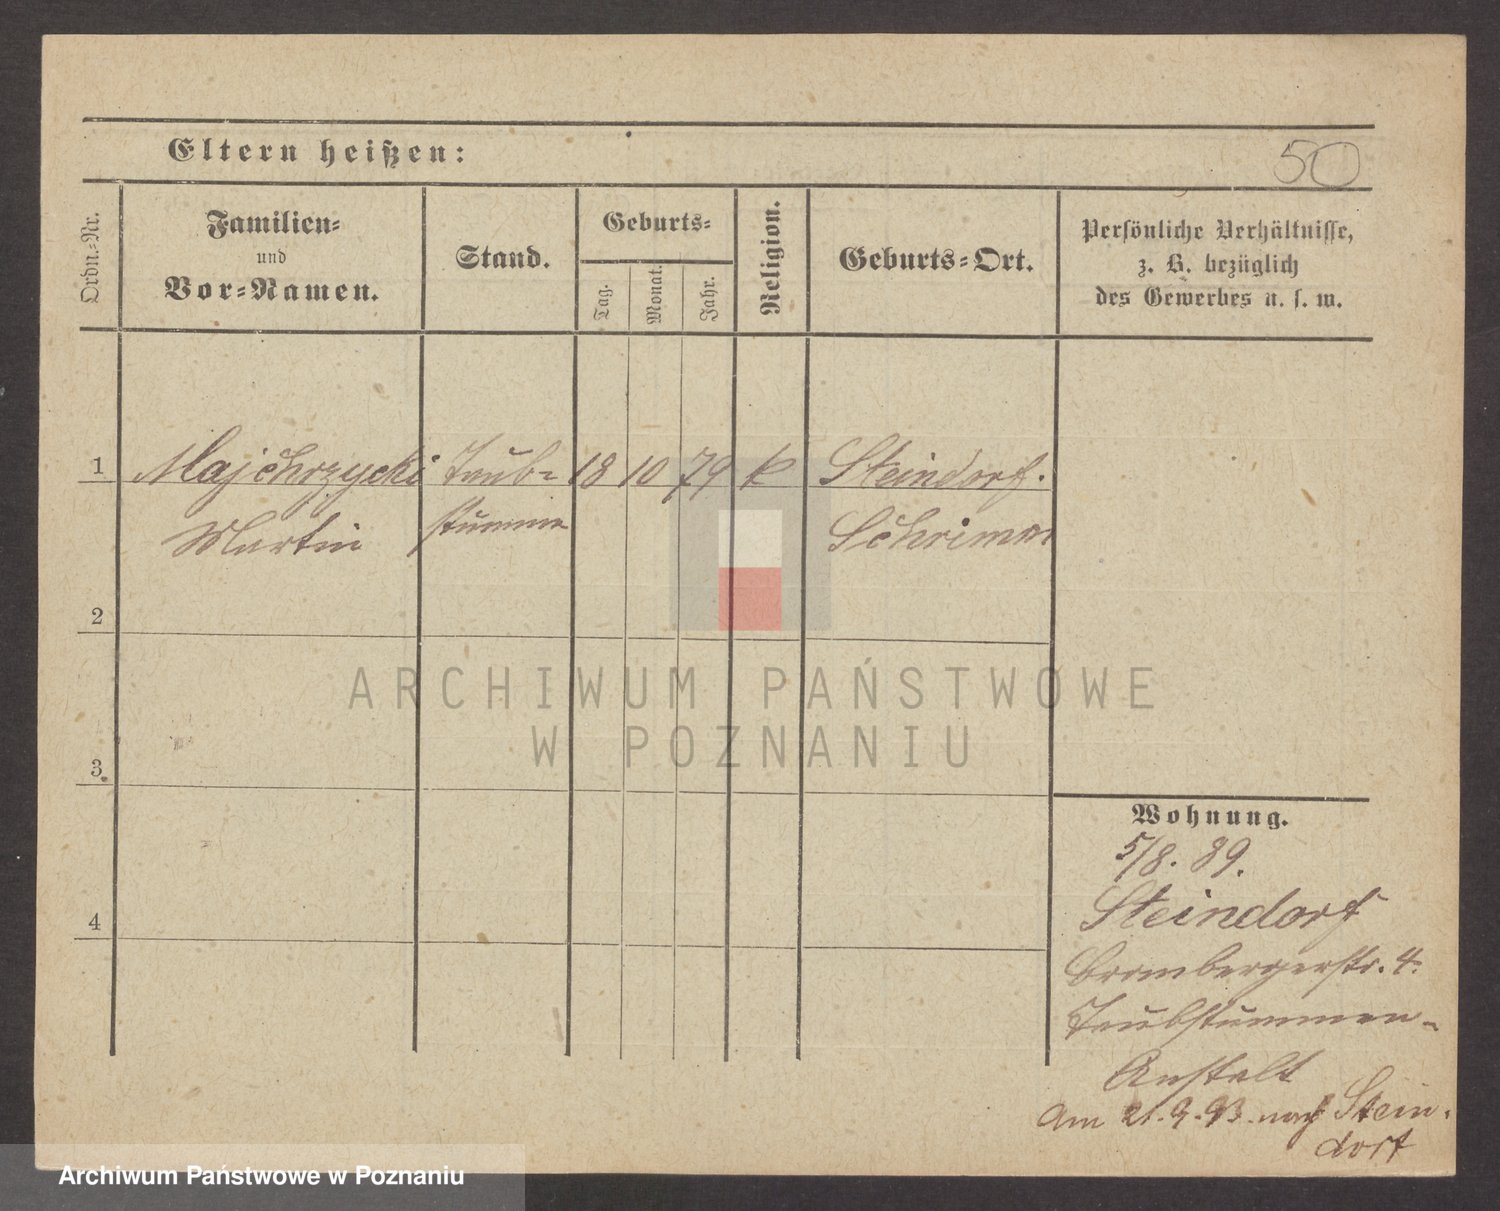 50
Eltern heißen:
Ordn.-Nr.
Familien-
und
Vor-Namen.
Stand.
Geburts-
Tag.
Monat.
Jahr.
Religion.
Geburts-Ort.
Persönliche Verhältnisse,
z. B. bezüglich
des Gewerbes u. s. w.
1 Majchrzycki Taub- 18 10 79 k Steindorf.
Martin stumme Schrimm
2
3
4
ARCHIWUM PAŃSTWOWE
W POZNANIU
Wohnung.
5/8. 89.
Steindorf
Brombergerstr. 4.
Taubstummen-
Anstalt
Am 21.9.93. nach Stein-
dorf
Archiwum Państwowe w Poznaniu